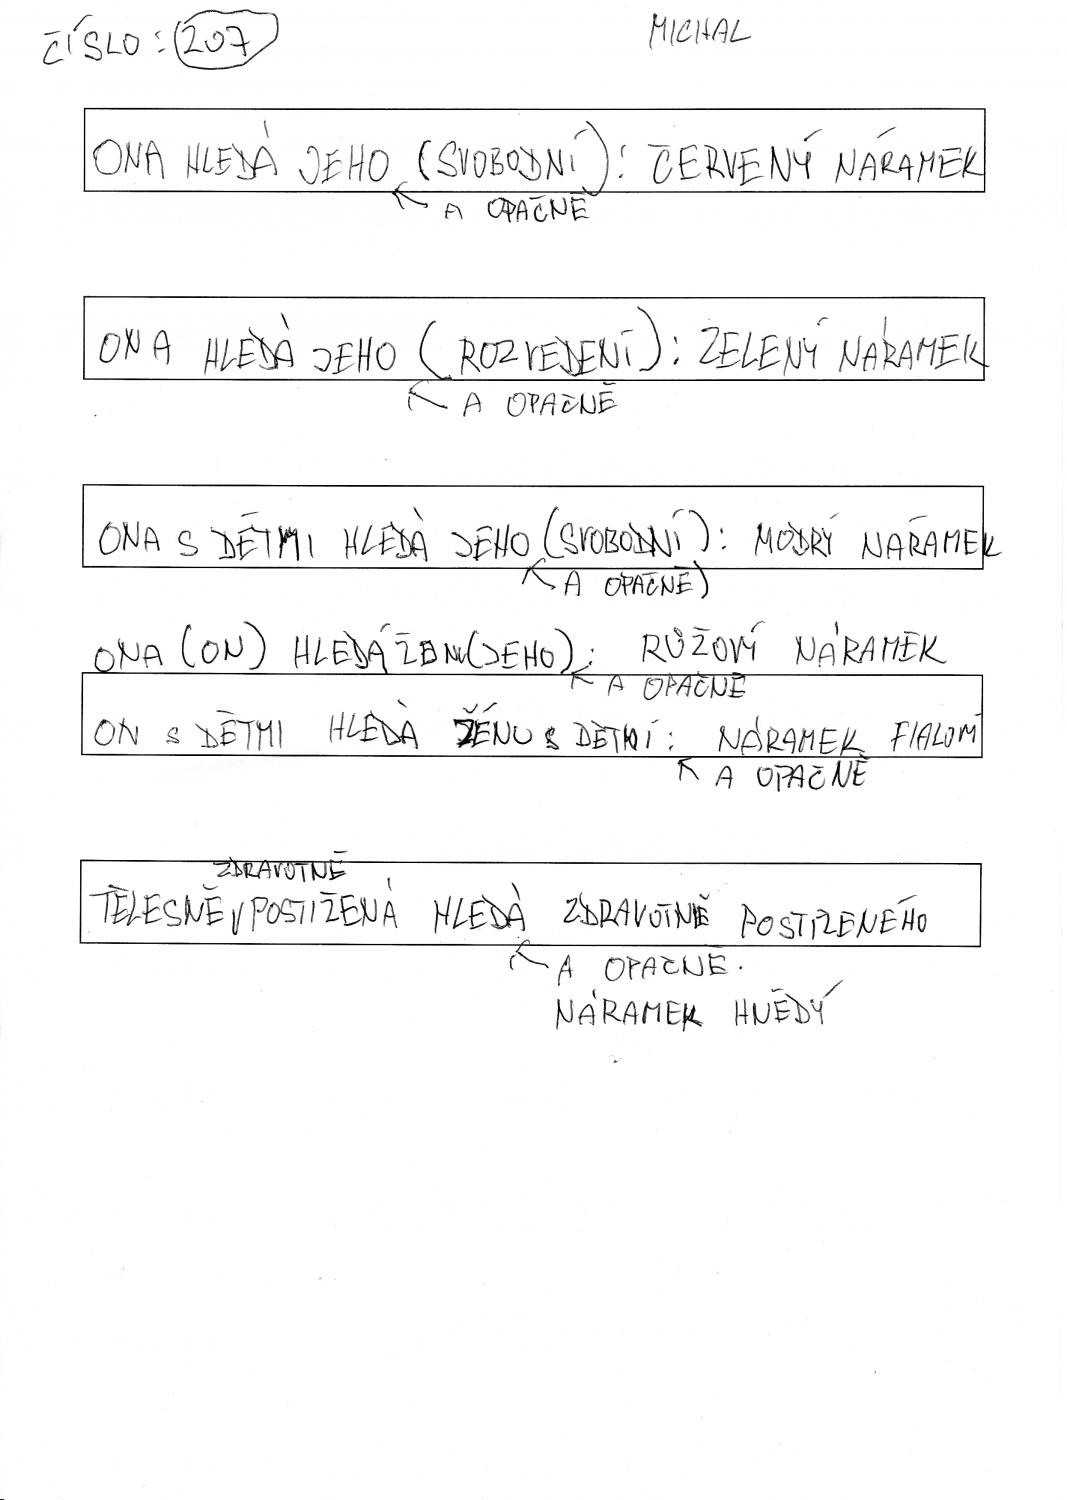 ČÍSLO: 207
MICHAL
ONA HLEDÁ JEHO (SVOBODNÍ): ČERVENÝ NÁRAMEK
A OPAČNĚ
ONA HLEDÁ JEHO (ROZVEDENÍ): ZELENÝ NÁRAMEK
A OPAČNĚ
ONA S DĚTMI HLEDÁ JEHO (SVOBODNÍ): MODRÝ NÁRAMEK
A OPAČNĚ)
ONA (ON) HLEDÁ (JEHO): RŮŽOVÝ NÁRAMEK
A OPAČNĚ
ON S DĚTMI HLEDÁ ŽENU S DĚTMI: NÁRAMEK FIALOVÍ
A OPAČNĚ
ZDRAVOTNĚ
TĚLESNĚ POSTIŽENÁ HLEDÁ ZDRAVOTNĚ POSTIŽENÉHO
A OPAČNĚ.
NÁRAMEK HNĚDÝ